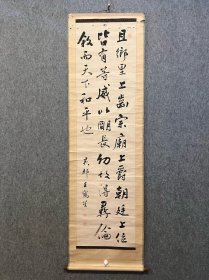 且鄉里上齒宗廟上爵朝廷上位
皆有等威以明長幼故得彝倫
敘而天下和平也